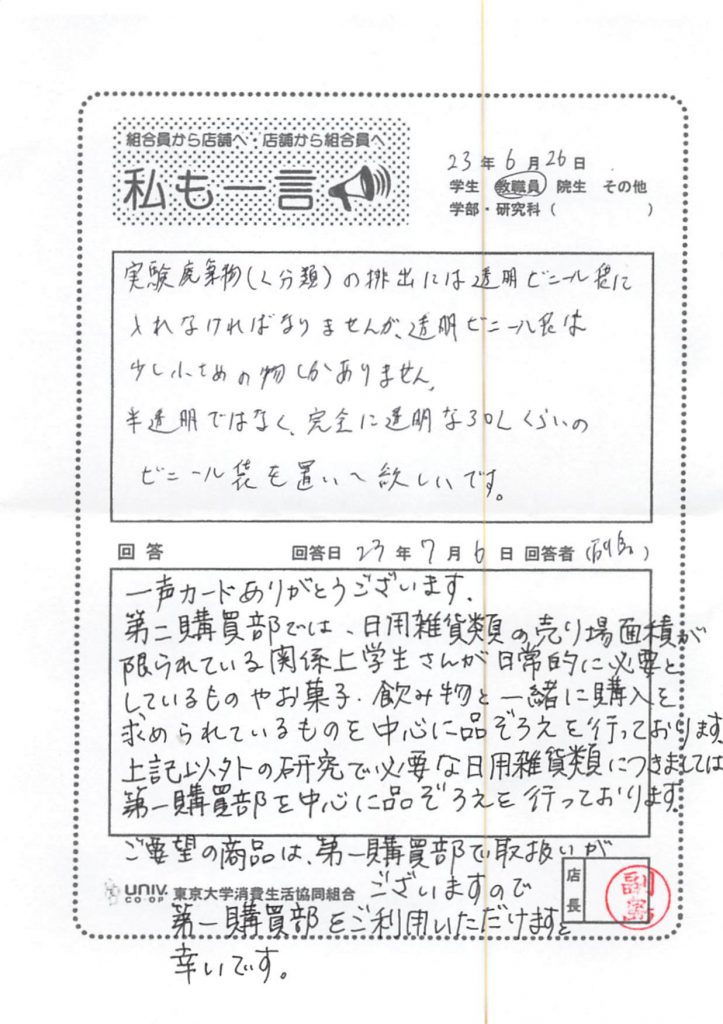 組合員から店舗へ・店舗から組合員へ
私も一言
23年6月26日
学生 教職員 院生 その他
学部・研究科( )
実験廃棄物(L分類)の排出には透明ビニール袋に
入れなければなりませんが、透明ビニール袋は
少し小さめの物しかありません。
半透明ではなく、完全に透明な30Lくらいの
ビニール袋を置いて欲しいです。
回答 回答日 23年7月6日 回答者(副島)
一声カードありがとうございます。
第二購買部では、日用雑貨類の売り場面積が
限られている関係上学生さんが日常的に必要と
しているものやお菓子・飲み物と一緒に購入を
求められているものを中心に品ぞろえを行っております。
上記以外の研究で必要な日用雑貨類につきましては
第一購買部を中心に品ぞろえを行っております。
ご要望の商品は、第一購買部で取扱いが
ございますので
第一購買部をご利用いただけますと
幸いです。
UNIV. CO-OP 東京大学消費生活協同組合
店長
副島